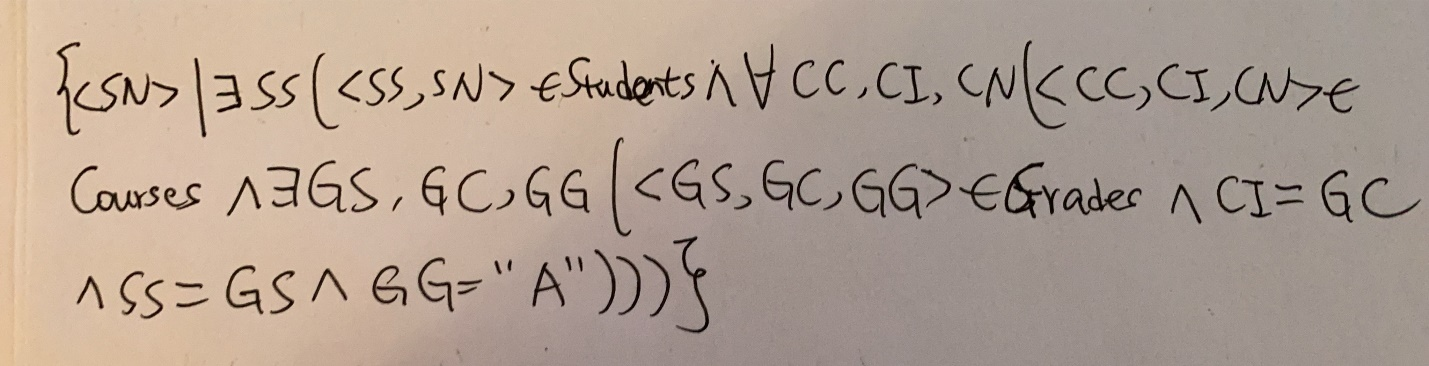 {<SN> | ∃ SS (<SS, SN> ∈ Students ∧ ∀ CC, CI, CN (< CC, CI, CN> ∈
Courses ∧ ∃ GS, GC, GG (<GS, GC, GG> ∈ Grades ∧ CI = GC
∧ SS = GS ∧ GG = "A")))}